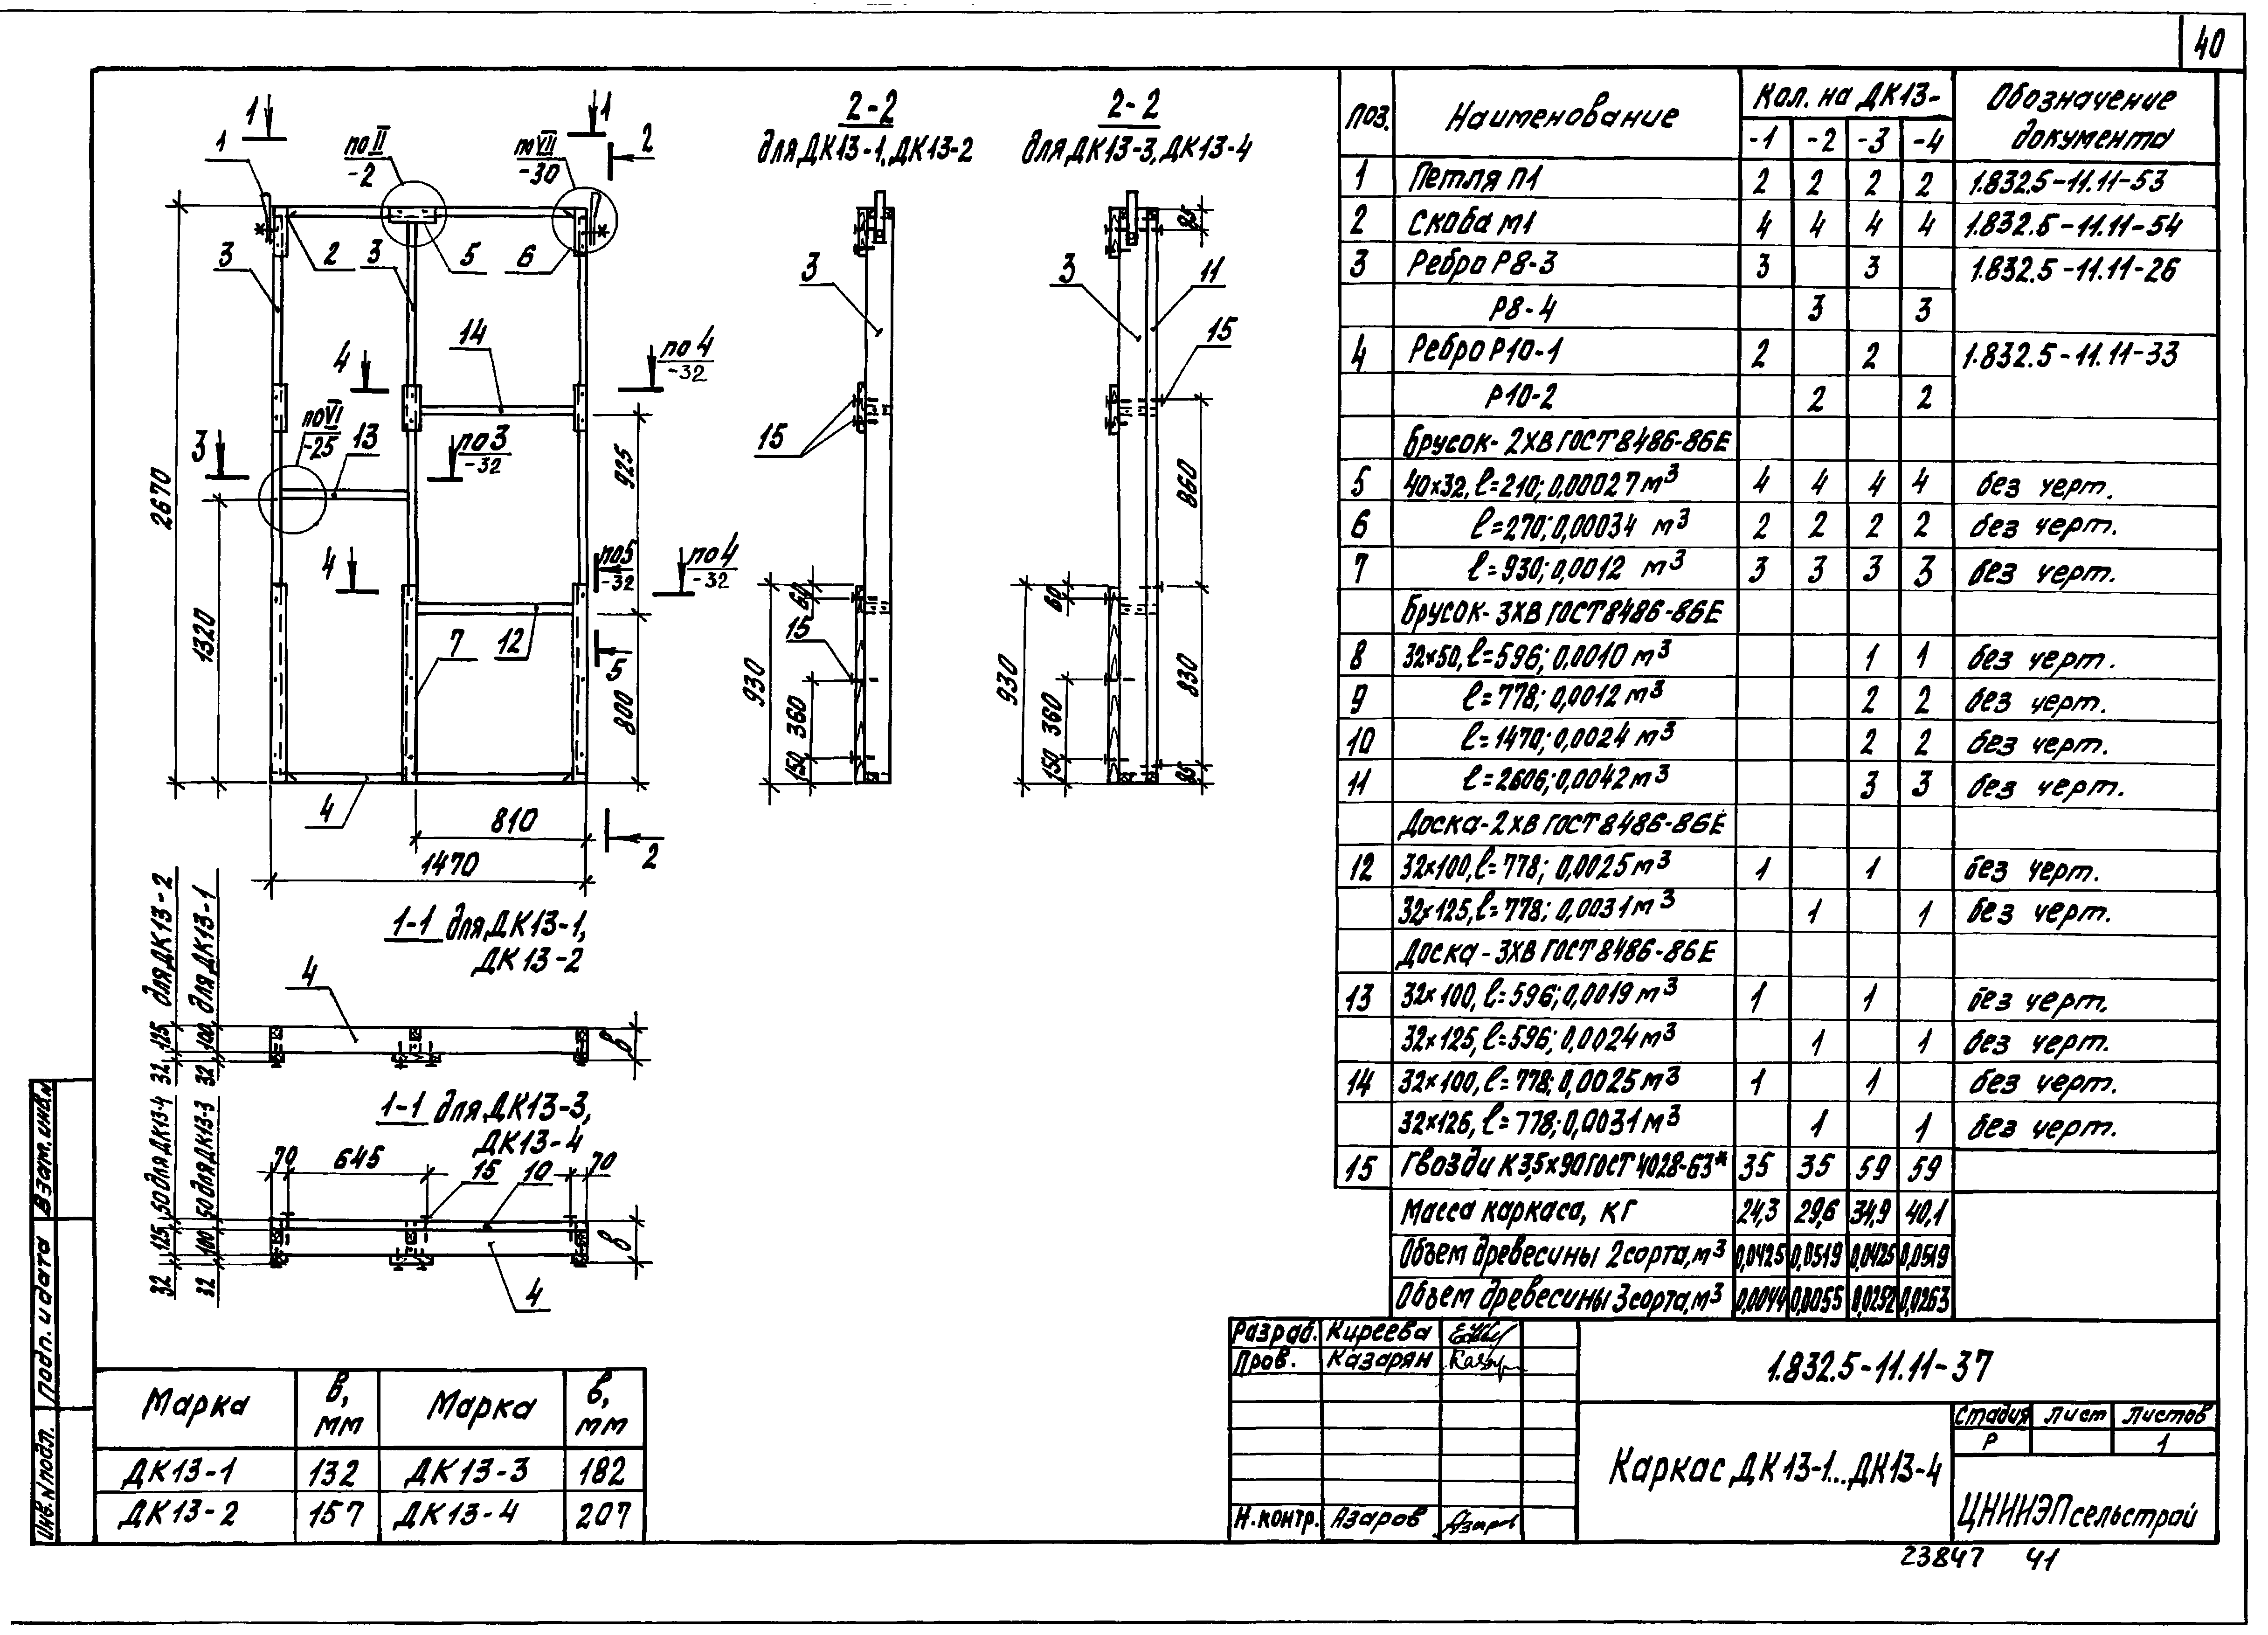 40
1
1
1
по II
-2
по VII
-30
2
3
2
3
5
6
14
4
по 4
-32
по VI
-25
13
3
по 3
-32
925
2670
1320
4
по 5
-32
по 4
-32
7
12
5
800
4
810
1470
2
2-2
для ДК13-1, ДК13-2
3
15
15
930
60
360
150
2-2
для ДК13-3, ДК13-4
85
3
11
15
860
60
930
360
150
830
95
1-1 для ДК13-1,
ДК13-2
32 125, для ДК13-2
32 100, для ДК13-1
4
в
1-1 для ДК13-3,
ДК13-4
32 125, 50 для ДК13-4
32 100 50 для ДК13-3
70
645
15
10
70
4
в
Марка в, мм Марка в, мм
ДК13-1 132 ДК13-3 182
ДК13-2 157 ДК13-4 207
Поз. Наименование Кол. на ДК13- Обозначение документа
-1 -2 -3 -4
1 Петля П1 2 2 2 2 1.832.5-11.11-53
2 Скоба М1 4 4 4 4 1.832.5-11.11-54
3 Ребро Р8-3 3 3 1.832.5-11.11-26
Р8-4 3 3
4 Ребро Р10-1 2 2 1.832.5-11.11-33
Р10-2 2 2
Брусок-2ХВ ГОСТ 8486-86Е
5 40×32, ℓ=210; 0,00027 м³ 4 4 4 4 без черт.
6 ℓ=270; 0,00034 м³ 2 2 2 2 без черт.
7 ℓ=930; 0,0012 м³ 3 3 3 3 без черт.
Брусок-3ХВ ГОСТ 8486-86Е
8 32×50, ℓ=596; 0,0010 м³ 1 1 без черт.
9 ℓ=778; 0,0012 м³ 2 2 без черт.
10 ℓ=1470; 0,0024 м³ 2 2 без черт.
11 ℓ=2606; 0,0042 м³ 3 3 без черт.
Доска-2ХВ ГОСТ 8486-86Е
12 32×100, ℓ=778; 0,0025 м³ 1 1 без черт.
32×125, ℓ=778; 0,0031 м³ 1 1 без черт.
Доска-3ХВ ГОСТ 8486-86Е
13 32×100, ℓ=596; 0,0019 м³ 1 1 без черт.
32×125, ℓ=596; 0,0024 м³ 1 1 без черт.
14 32×100, ℓ=778; 0,0025 м³ 1 1 без черт.
32×125, ℓ=778; 0,0031 м³ 1 1 без черт.
15 Гвозди К3,5×90 ГОСТ 4028-63* 35 35 59 59
Масса каркаса, кг 24,3 29,6 34,9 40,1
Объем древесины 2 сорта, м³ 0,0425 0,0519 0,0425 0,0519
Объем древесины 3 сорта, м³ 0,0044 0,0055 0,0252 0,0263
Разраб. Киреева
Пров. Казарян
Н.контр. Азаров Азаров
1.832.5-11.11-37
Каркас ДК13-1...ДК13-4
Стадия Лист Листов
Р 1
ЦНИИЭПсельстрой
23847 41
Инв.N подл. Подп. и дата Взам. инв.N